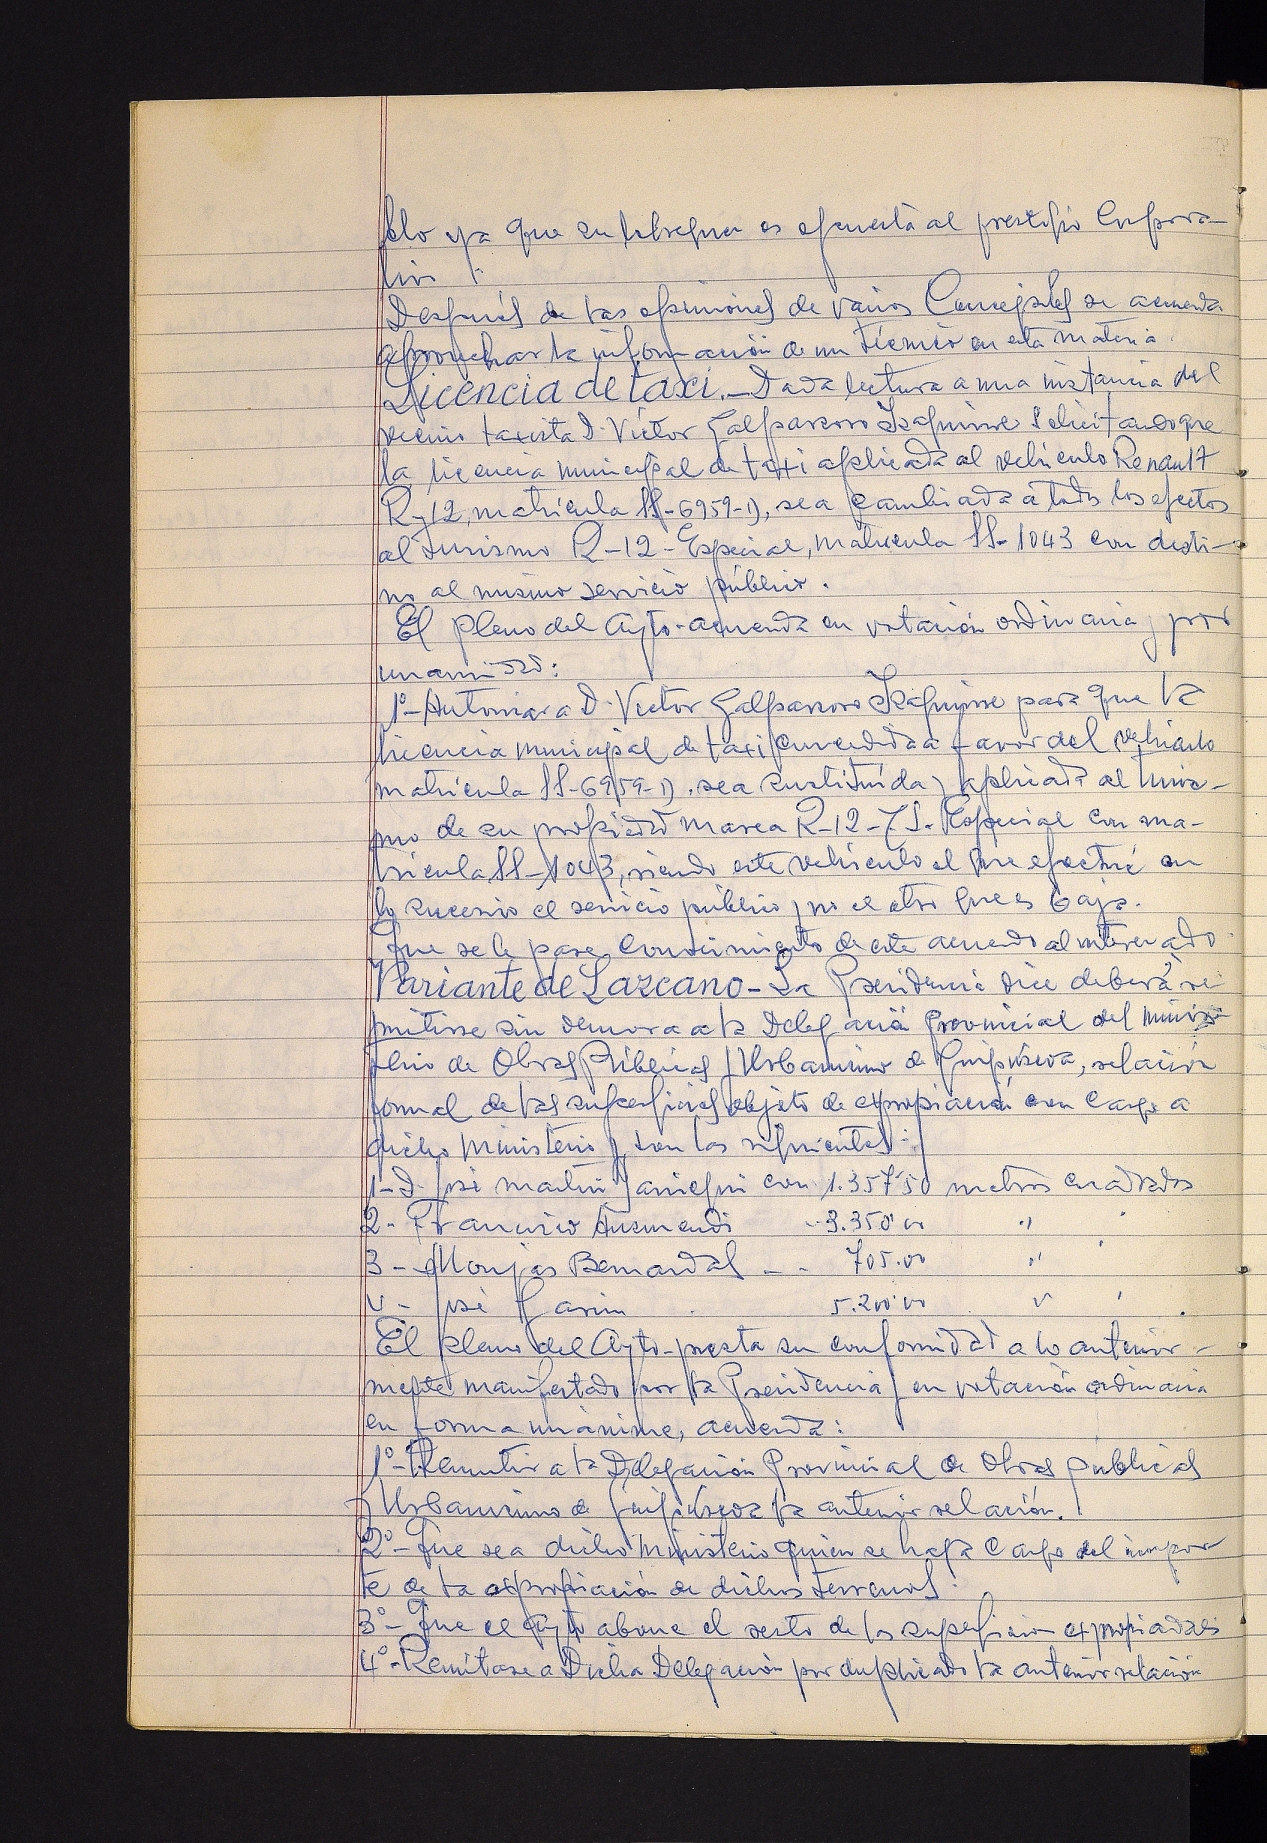 ya que su es al prestigio Corpora-
tivo.
Después de las opiniones de varios Concejales se acuerda
aprovechar la información de un técnico en esta materia.
Licencia de taxi.- Dada lectura a una instancia del
vecino taxista D. Victor Galparsoro Izaguirre solicitando que
la licencia municipal de taxi aplicada al vehiculo Renault
R-12, matrícula SS-6959-D, sea cambiada a todos los efectos
al turismo R-12-Especial, matricula SS-1043 con desti-
no al mismo servicio público.
El Pleno del Ayto. acuerda en votación ordinaria y por
unanimidad:
1º- Autorizar a D. Victor Galparsoro Izaguirre para que la
licencia municipal de taxi concedida a favor del vehiculo
matrícula SS-6959-D, sea sustituída y aplicada al turis-
mo de su propiedad marca R-12-T.S. Especial con ma-
tricula SS-1043, siendo este vehículo el que efectué en
lo sucesivo el servicio público y no el otro que es baja.
Que se le pase conocimiento de este acuerdo al interesado.
Variante de Lazcano - La Presidencia dice deberá re-
mitirse sin demora a la Delegación Provincial del Minis-
terio de Obras Públicas y Urbanismo de Guipúscoa, relación
formal de las superficies objeto de expropiación con cargo a
dicho Ministerio y son las siguientes:
1- D. José Martin con 1.357'50 metros cuadrados
2- Francisco Auzmendi -- 3.350'00 " "
3- Monjas Bernardas -- 705.00 " "
4- José 5.200'00 " "
El pleno del Ayto. presta su conformidad a lo anterior-
mente manifestado por la Presidencia y en votación ordinaria
en forma unánime, acuerda:
1º- Remitir a la Delegación Provincial de Obras publicas
y Urbanismo de Guipúscoa la anterior relación.
2º- Que sea dicho Ministerio quien se haga cargo del impor
te de la expropiación de dichos terrenos.
3º- Que el Ayto abone el resto de las superficies expropiadas
4º- Remítase a Dicha Delegación por duplicado la anterior relación